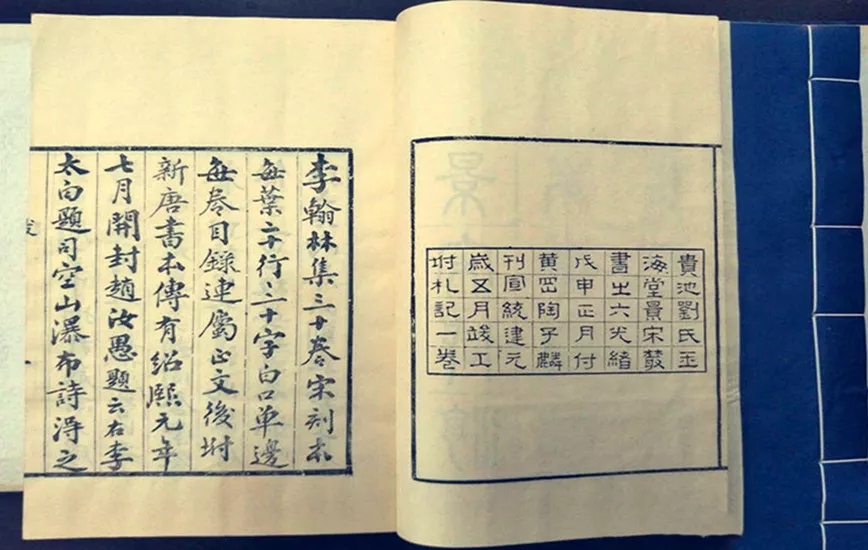 貴池劉氏玉
海堂景宋叢
書之六光緒
戊申正月付
黄岡陶子麟
刊宣統建元
歲五月竣工
坿札記一卷
李翰林集三十卷宋刻本
每葉二十行二十字白口單邊
每卷目錄連屬正文後坿
新唐書本傳有紹熙元年
七月開封趙汝愚題云右李
太白題司空山瀑布詩淂之